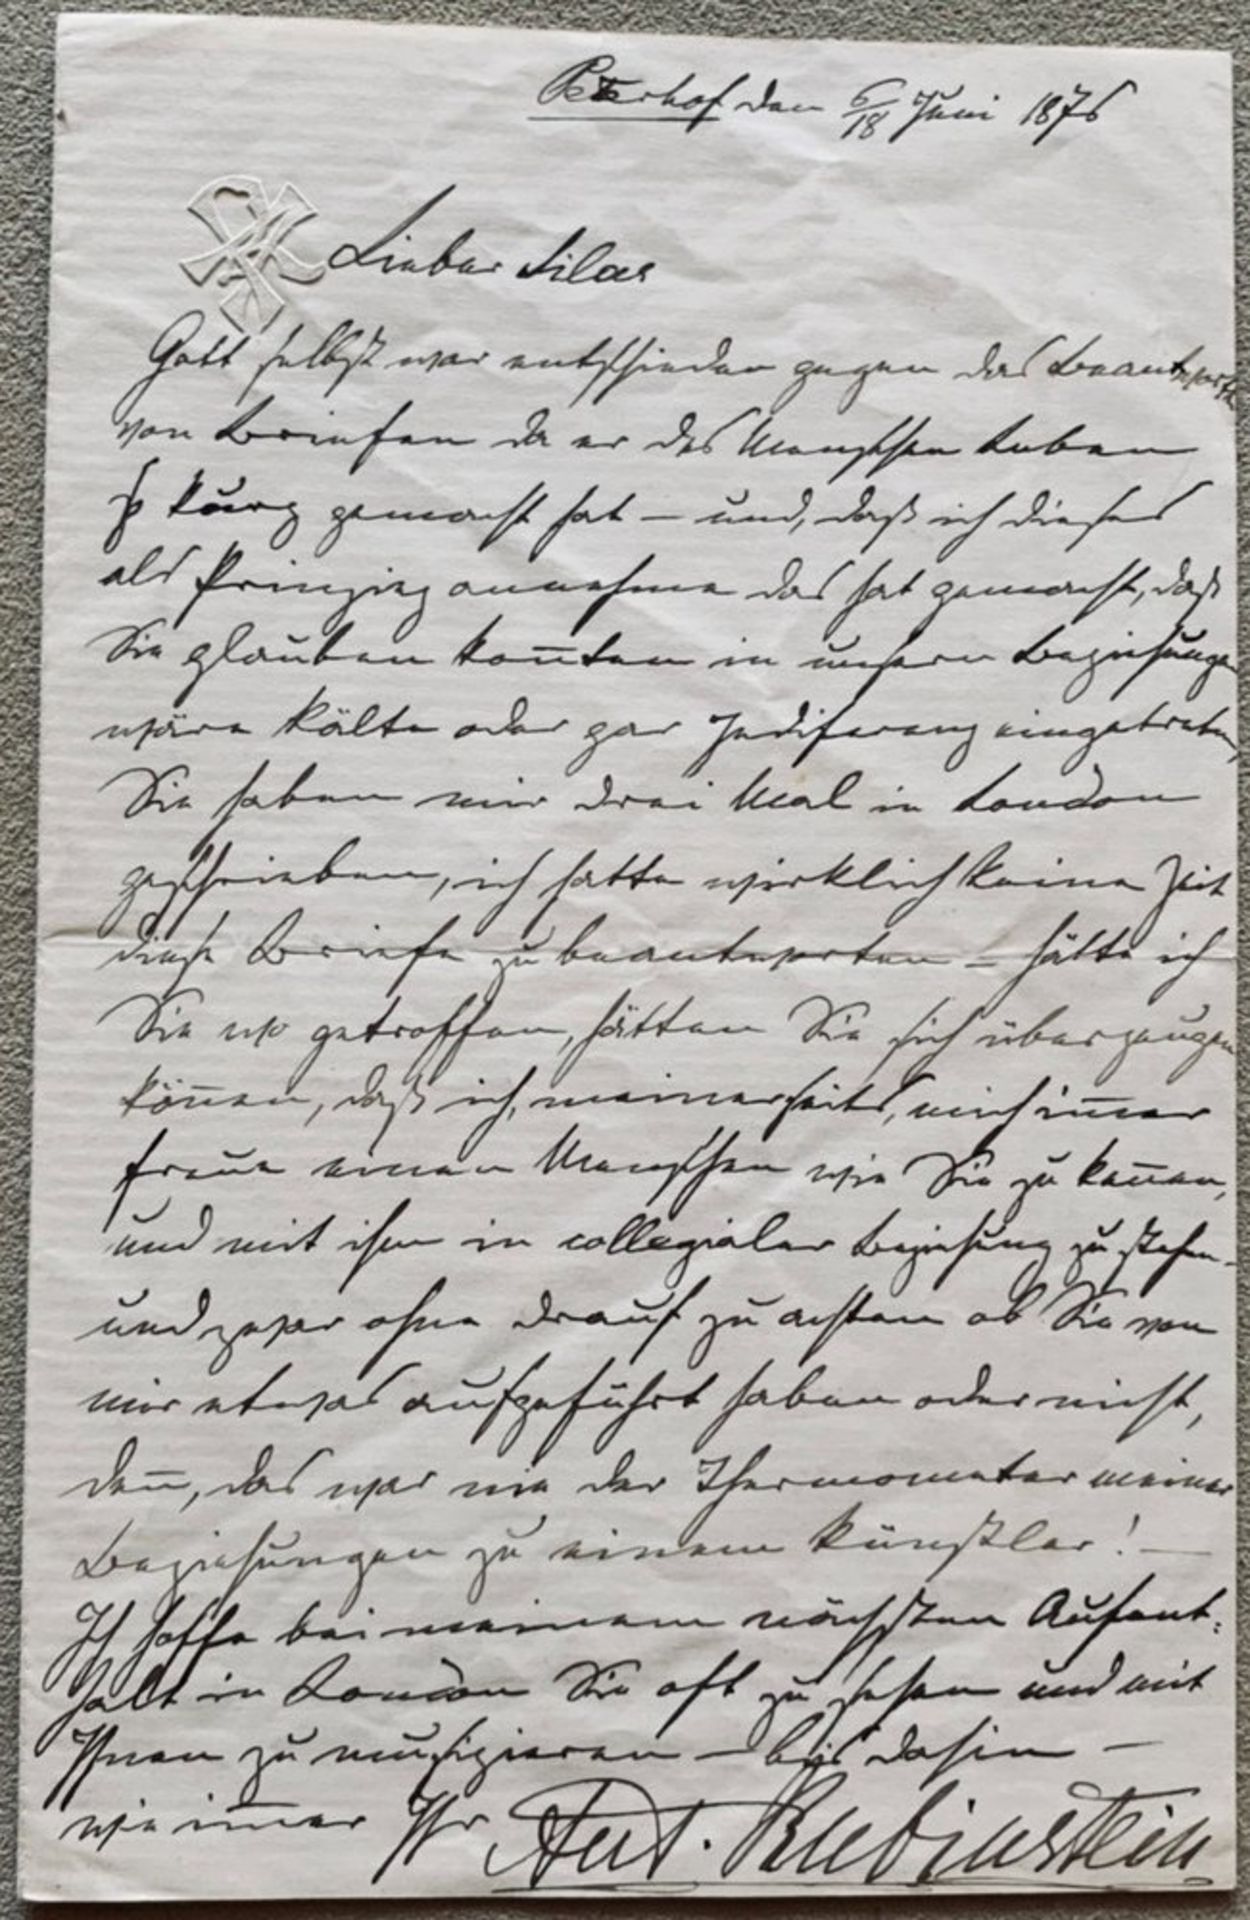 Peterhof den 6/18 Juni 1876
Lieber Silas
Gott selbst war entschieden gegen das Beantworten
von Briefen da er des Menschen Leben
so kurz gemacht hat — und, daß ich dieses
als Prinzip annehme das hat gemacht, daß
Sie glauben kon̄ten in unsern Beziehungen
wäre Kälte oder gar Indiferenz eingetreten,
Sie haben mir drei Mal in London
geschrieben, ich hatte wirklich keine Zeit
diese Briefe zu beantworten – hätte ich
Sie wo getroffen, hätten Sie sich überzeugen
kön̄en, daß ich, meinerseits, mich im̄er
freue einen Menschen wie Sie zu ken̄en,
und mit ihm in collegialer Beziehung zu stehen –
und zwar ohne drauf zu achten ob Sie von
mir etwas aufgeführt haben oder nicht,
den̄, das war nie der Thermometer meiner
Beziehungen zu einem Künstler! —
Ich hoffe bei meinem nächsten Aufent:
halt in London Sie oft zu sehen und mit
Ihnen zu musizieren — bis dahin —
wie im̄er Ihr Ant. Rubinstein